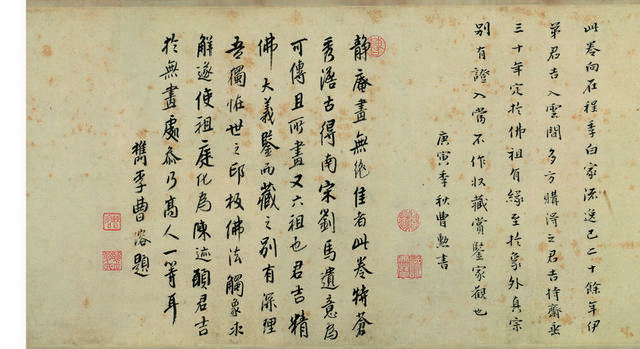 此卷向在程季白家流送已二十餘年伊
弟君吉入雲間多方購得之君吉持齋垂
三十年定於佛祖有緣至於象外真宗
別有證入當不作收藏賞鑒家觀也
庚寅季秋曹勳書
靜庵畫無絕佳者此卷特蒼
秀濳古得南宋劉馬遺意為
可傳且所畫又六祖也君吉精
佛大義鑒而藏之別有深理
吾獨怪世之印板佛法觸象求
解遂使祖庭化為陳迹願君吉
於無畫處參乃高人一等耳
檇李曹溶題